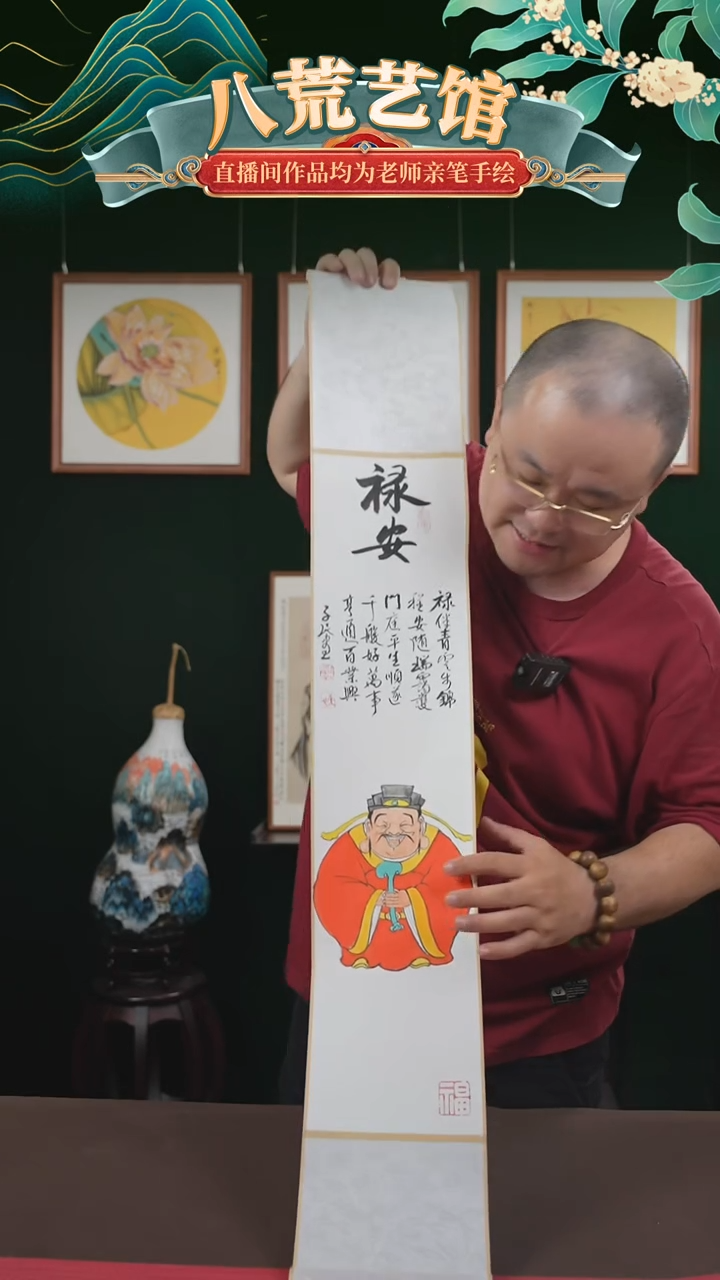 八荒艺馆
直播间作品均为老师亲笔手绘
禄
安
禄伴青云步锦
程安随瑞霭护
门庭平生顺遂
千般好万事
亨通百业兴
福